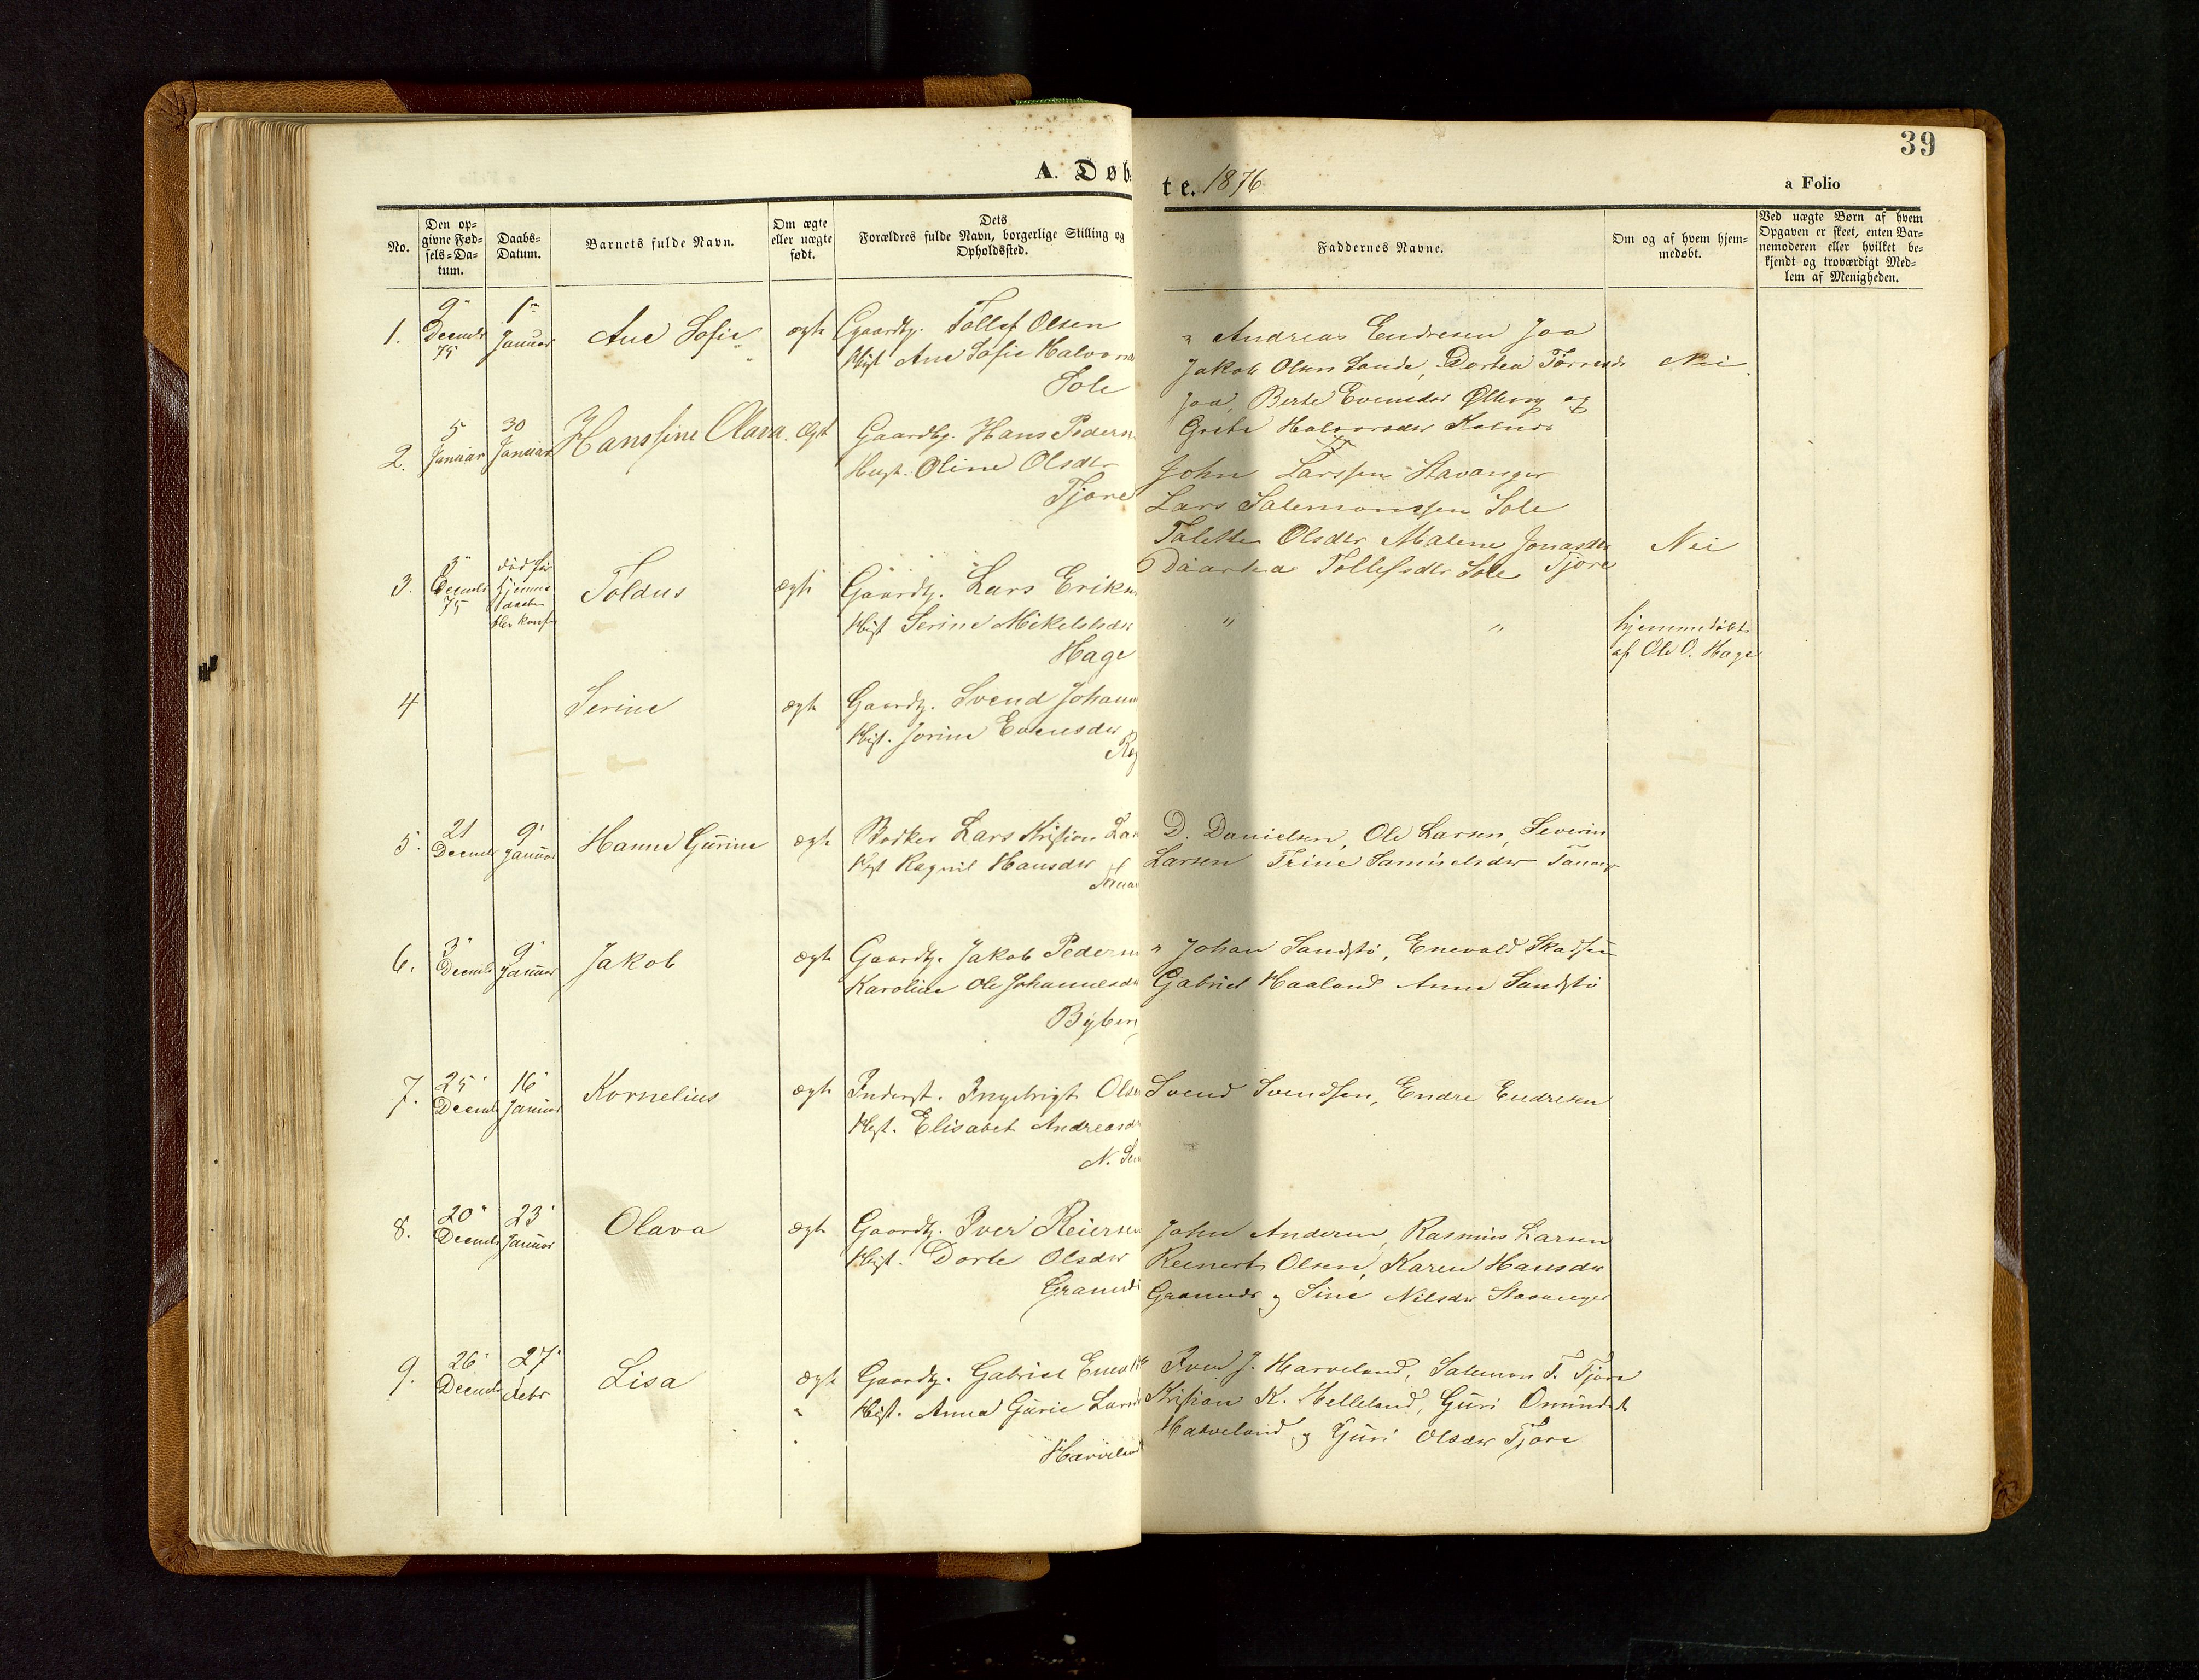 39
A. Døb
te. 1876
a Folio
No.
Den op-
givne Fød-
sels-Da-
tum.
Daabs-
Datum.
Barnets fulde Navn.
Om ægte
eller uægte
født.
Dets
Forældres fulde Navn, borgerlige Stilling og
Opholdssted.
Faddernes Navne.
Om og af hvem hjem-
medøbt.
Ved uægte Børn af hvem
Opgaven er skeet, enten Bar-
nemoderen eller hvilket be-
kjendt og troværdigt Med-
lem af Menigheden.
1.
9
Decmbr
75
1
Januar
Ane Sofie
ægte
Gaardbr. Tollef Olsen
Hust Ane Sofie Halvors
Sole
Andreas Endresen Joa
Jakob Olsen Sande, Dortea
Joa, Berte Evensdtr Ølberg og
Grete Halvorsdtr
Nei
2.
5
Januar
30
Januar
Hanssine Olava.
Ægt
Gaardbr. Hans Peders
Hust. Oline Olsdtr
Tjore
John Larssen Stavanger
Lars Salemonssen Sole
Talette Olsdtr Malene Jonasdtr
Tollefsdtr Sole Tjore
Nei
3.
3
Decmbr
75
død før
hjemme
Toldus
ægte
Gaardbr. Lars Eriks
Hust Serine Mikelsdtr
Hage
" "
hjemmedøbt
af Ole O. Hage
4
Serine
ægte
Gaardbr. Svend Johann
Hust. Jorine Evensdtr
Reg
5.
21
Decmbr
9
Januar
Hanne Gurine
ægte
Bødker Lars Kristian Lar
Hust Ragnil Hansdtr
D. Danielsen, Ole Larsen, Severin
Larsen Trine Samuelsdtr Tananger
6.
3
Decmbr
9
Januar
Jakob
ægte
Gaardbr. Jakob Peders
Karoline Ole Johannesdtr
Byberg
" Johan Sandstø, Enevald
Gabriel Haaland Anna Sandstø
7.
25
Decmbr
16
Januar
Kornelius
ægte
Inderst. Ingebrigt Olsen
Hust. Elisabet Andreasdtr
Svend Svendsen, Endre Endresen
8.
20
Decmbr
23
Januar
Olava
ægte
Gaardbr. Iver Reiersen
Hust. Dorte Olsdtr
Grannes
John Andersen, Rasmus Larsen
Reinert Olsen, Karen Hansdtr
Grannes og Sine Nilsdtr Stavanger
9.
26
Decmbr
27
Febr
Lisa
ægte
Gaardbr. Gabriel Enevald
Hust. Anna Gurie Lars
Harveland
Iver J. Harveland, Salemon T. Tjora
Kristian K. Helleland, Guri Omundsdtr
Harveland og Guri Olsdtr Tjora